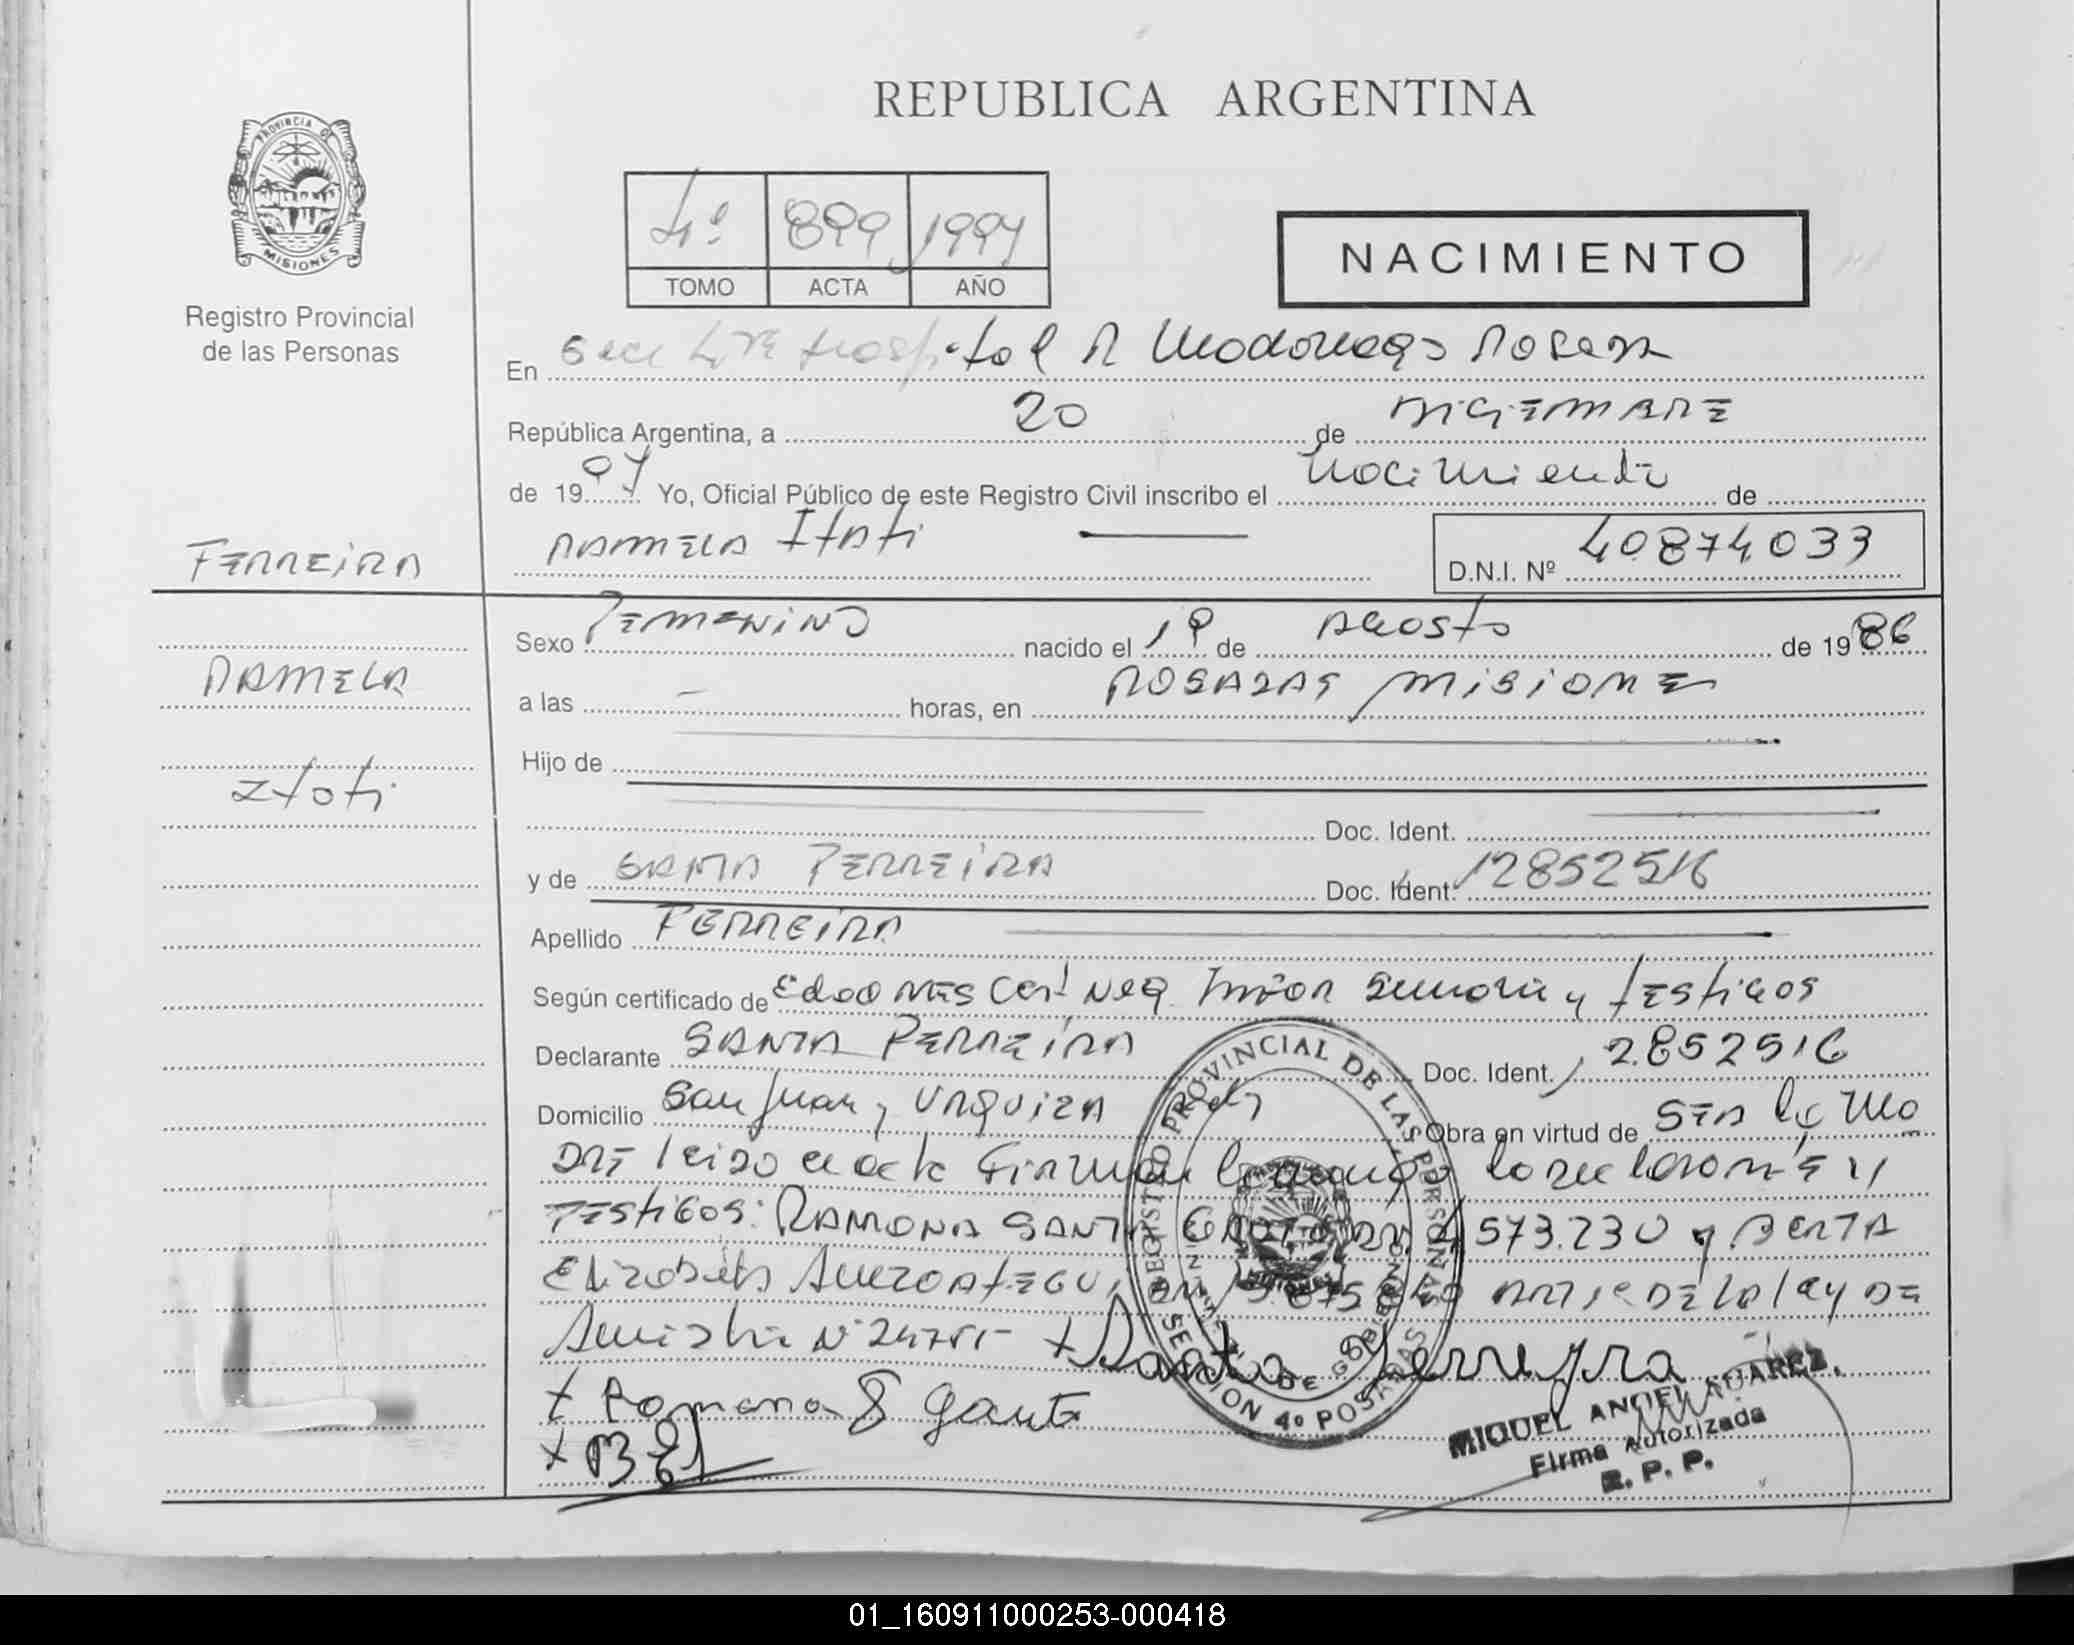 REPUBLICA ARGENTINA
PROVINCIA DE
MISIONES
Registro Provincial
de las Personas
4º 899 1997
TOMO ACTA AÑO
NACIMIENTO
En Secc 4ta Hospital R Madariaga Posadas
República Argentina, a 20 de DICIEMBRE
de 1997 Yo, Oficial Público de este Registro Civil inscribo el Nacimiento de
PAMELA Itati
D.N.I. Nº 40874033
FERREIRA
PAMELA
Itati
Sexo FEMENINO nacido el 19 de AGOSTO de 1986
a las — horas, en POSADAS, MISIONES
Hijo de
Doc. Ident.
y de SANTA FERREIRA Doc. Ident. 12852516
Apellido FERREIRA
Según certificado de Edad MES Cert Neg y testigos
Declarante SANTA FERREIRA Doc. Ident. 12852516
Domicilio San Juan y URQUIZA Obra en virtud de SER la MA
DRE leido el acta Firman la declarante y
TESTIGOS: RAMONA SANTA 4573.230 y BERTA
Elizabeth DE la ley DE
Amnistia Nº
+ Santa Ferreyra
+ Ramona S
+ BEA
REGISTRO PROVINCIAL DE LAS PERSONAS
MINISTERIO DE GOBIERNO
SECCION 4º POSADAS
MISIONES
MIGUEL ANGEL SUAREZ
Firma Autorizada
R. P. P.
01_160911000253-000418